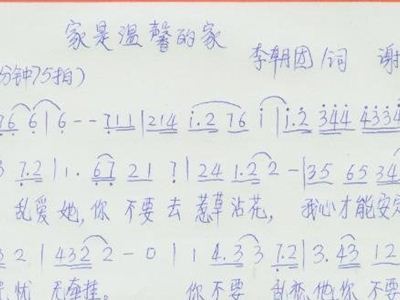 家是温馨的家
李朝团 词 谢
分钟75拍)
76 6 | 6 - - 711 | 214 i.2 76 i | i.2 344 4334
7.2 | 1. 67 21 7 | 24 1.22 - | 35 65 34
乱爱她,你 不 要 去 惹草沾花, 我心才能安定
3 2 | 432 2 - 0 | 1 4.3 3 7.2 | 3.43 12
忧 无牵挂。 你不 要 乱恋他你 不要